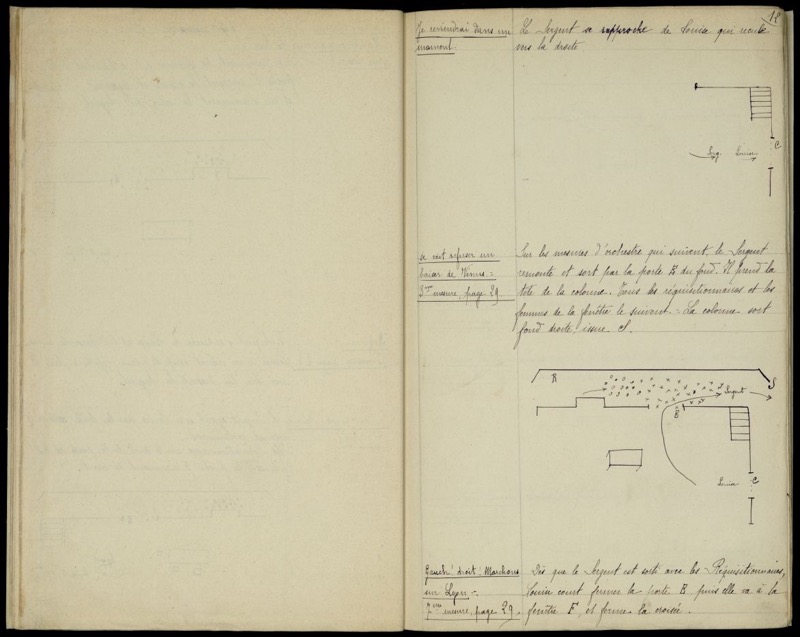 12
Je reviendrai dans un
moment.
Le Sergent se rapproche de Louise qui recule
vers la droite
Serg. Louise
C
se voit refuser un
baiser de Vénus.=
3me mesure, page 29.
Sur les mesures d'orchestre qui suivent, le Sergent
remonte et sort par la porte B du fond. Il prend la
tête de la colonne. Tous les réquisitionnaires et les
femmes de la fenêtre le suivent. - La colonne sort
fond droite, issue S.
R
Sergent
S
B
Louise
C
Gauch! droit! Marchons
sur Lyon -.
7me mesure, page 29.
Dès que le Sergent est sorti avec les Réquisitionnaires,
Louise court fermer la porte B puis elle va à la
fenêtre F, et ferme la croisée.